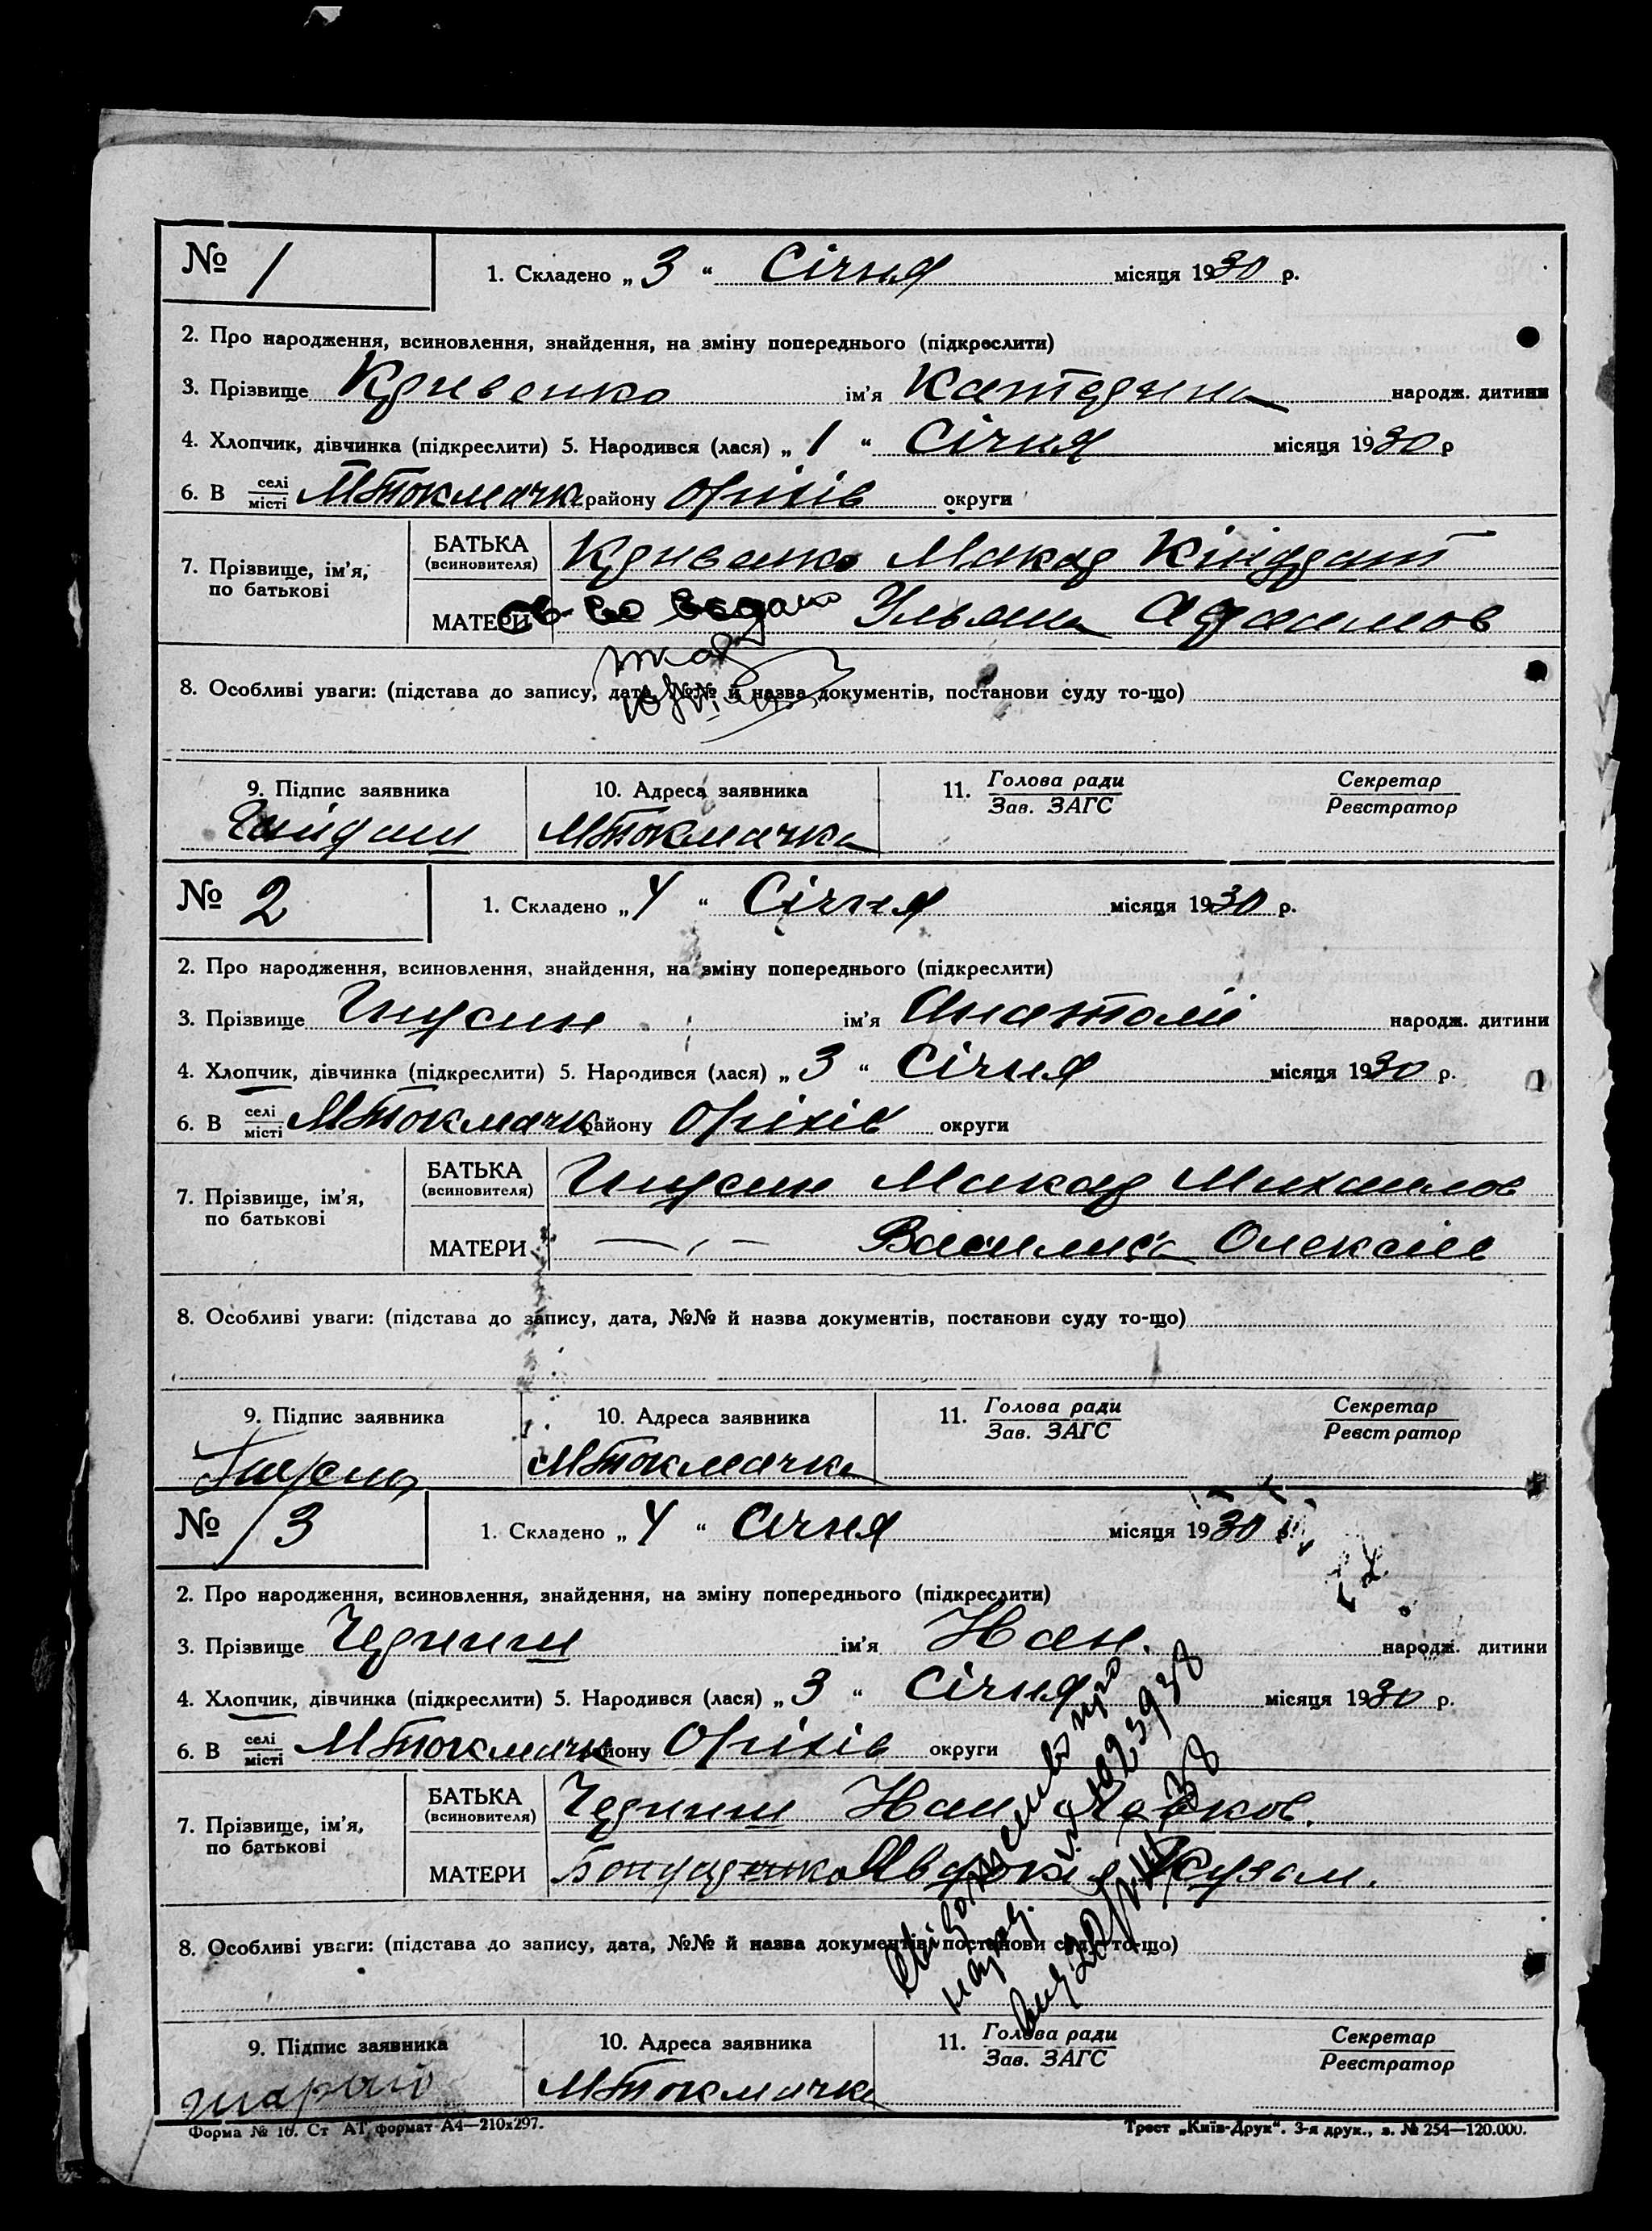 № 1
1. Складено „ 3 “ Січня місяця 1930 р.
2. Про народження, всиновлення, знайдення, на зміну попереднього (підкреслити)
3. Прізвище Кривенко ім'я Катерина народж. дитини
4. Хлопчик, дівчинка (підкреслити) 5. Народився (лася) „ 1 “ Січня місяця 1930 р
6. В селі/місті МТокмачк району Оріхів округи
7. Прізвище, ім'я, по батькові
БАТЬКА (всиновителя) Кривенко Макар Кіндрат
МАТЕРИ Ульяна
8. Особливі уваги: (підстава до запису, дата, №№ й назва документів, постанови суду то-що)
9. Підпис заявника
10. Адреса заявника МТокмачка
11. Голова ради/Зав. ЗАГС
Секретар/Реєстратор
№ 2
1. Складено „ 4 “ Січня місяця 1930 р.
2. Про народження, всиновлення, знайдення, на зміну попереднього (підкреслити)
3. Прізвище ім'я Анатолій народж. дитини
4. Хлопчик, дівчинка (підкреслити) 5. Народився (лася) „ 3 “ Січня місяця 1930 р.
6. В селі/місті МТокмачк району Оріхів округи
7. Прізвище, ім'я, по батькові
БАТЬКА (всиновителя) Макар Михаилов
МАТЕРИ — „ — Василиса Олексіев
8. Особливі уваги: (підстава до запису, дата, №№ й назва документів, постанови суду то-що)
9. Підпис заявника
10. Адреса заявника МТокмачка
11. Голова ради/Зав. ЗАГС
Секретар/Реєстратор
№ 3
1. Складено „ 4 “ Січня місяця 1930 р.
2. Про народження, всиновлення, знайдення, на зміну попереднього (підкреслити)
3. Прізвище ім'я Иван. народж. дитини
4. Хлопчик, дівчинка (підкреслити) 5. Народився (лася) „ 3 “ Січня місяця 1930 р.
6. В селі/місті МТокмачк району Оріхів округи
7. Прізвище, ім'я, по батькові
БАТЬКА (всиновителя) Иван
МАТЕРИ Бондаренко Кузьм.
8. Особливі уваги: (підстава до запису, дата, №№ й назва документів, постанови суду то-що)
9. Підпис заявника
10. Адреса заявника МТокмачка
11. Голова ради/Зав. ЗАГС
Секретар/Реєстратор
Форма № 16. Ст АТ, формат А4—210х297.
Трест „Київ-Друк“. 3-я друк., з. № 254—120.000.